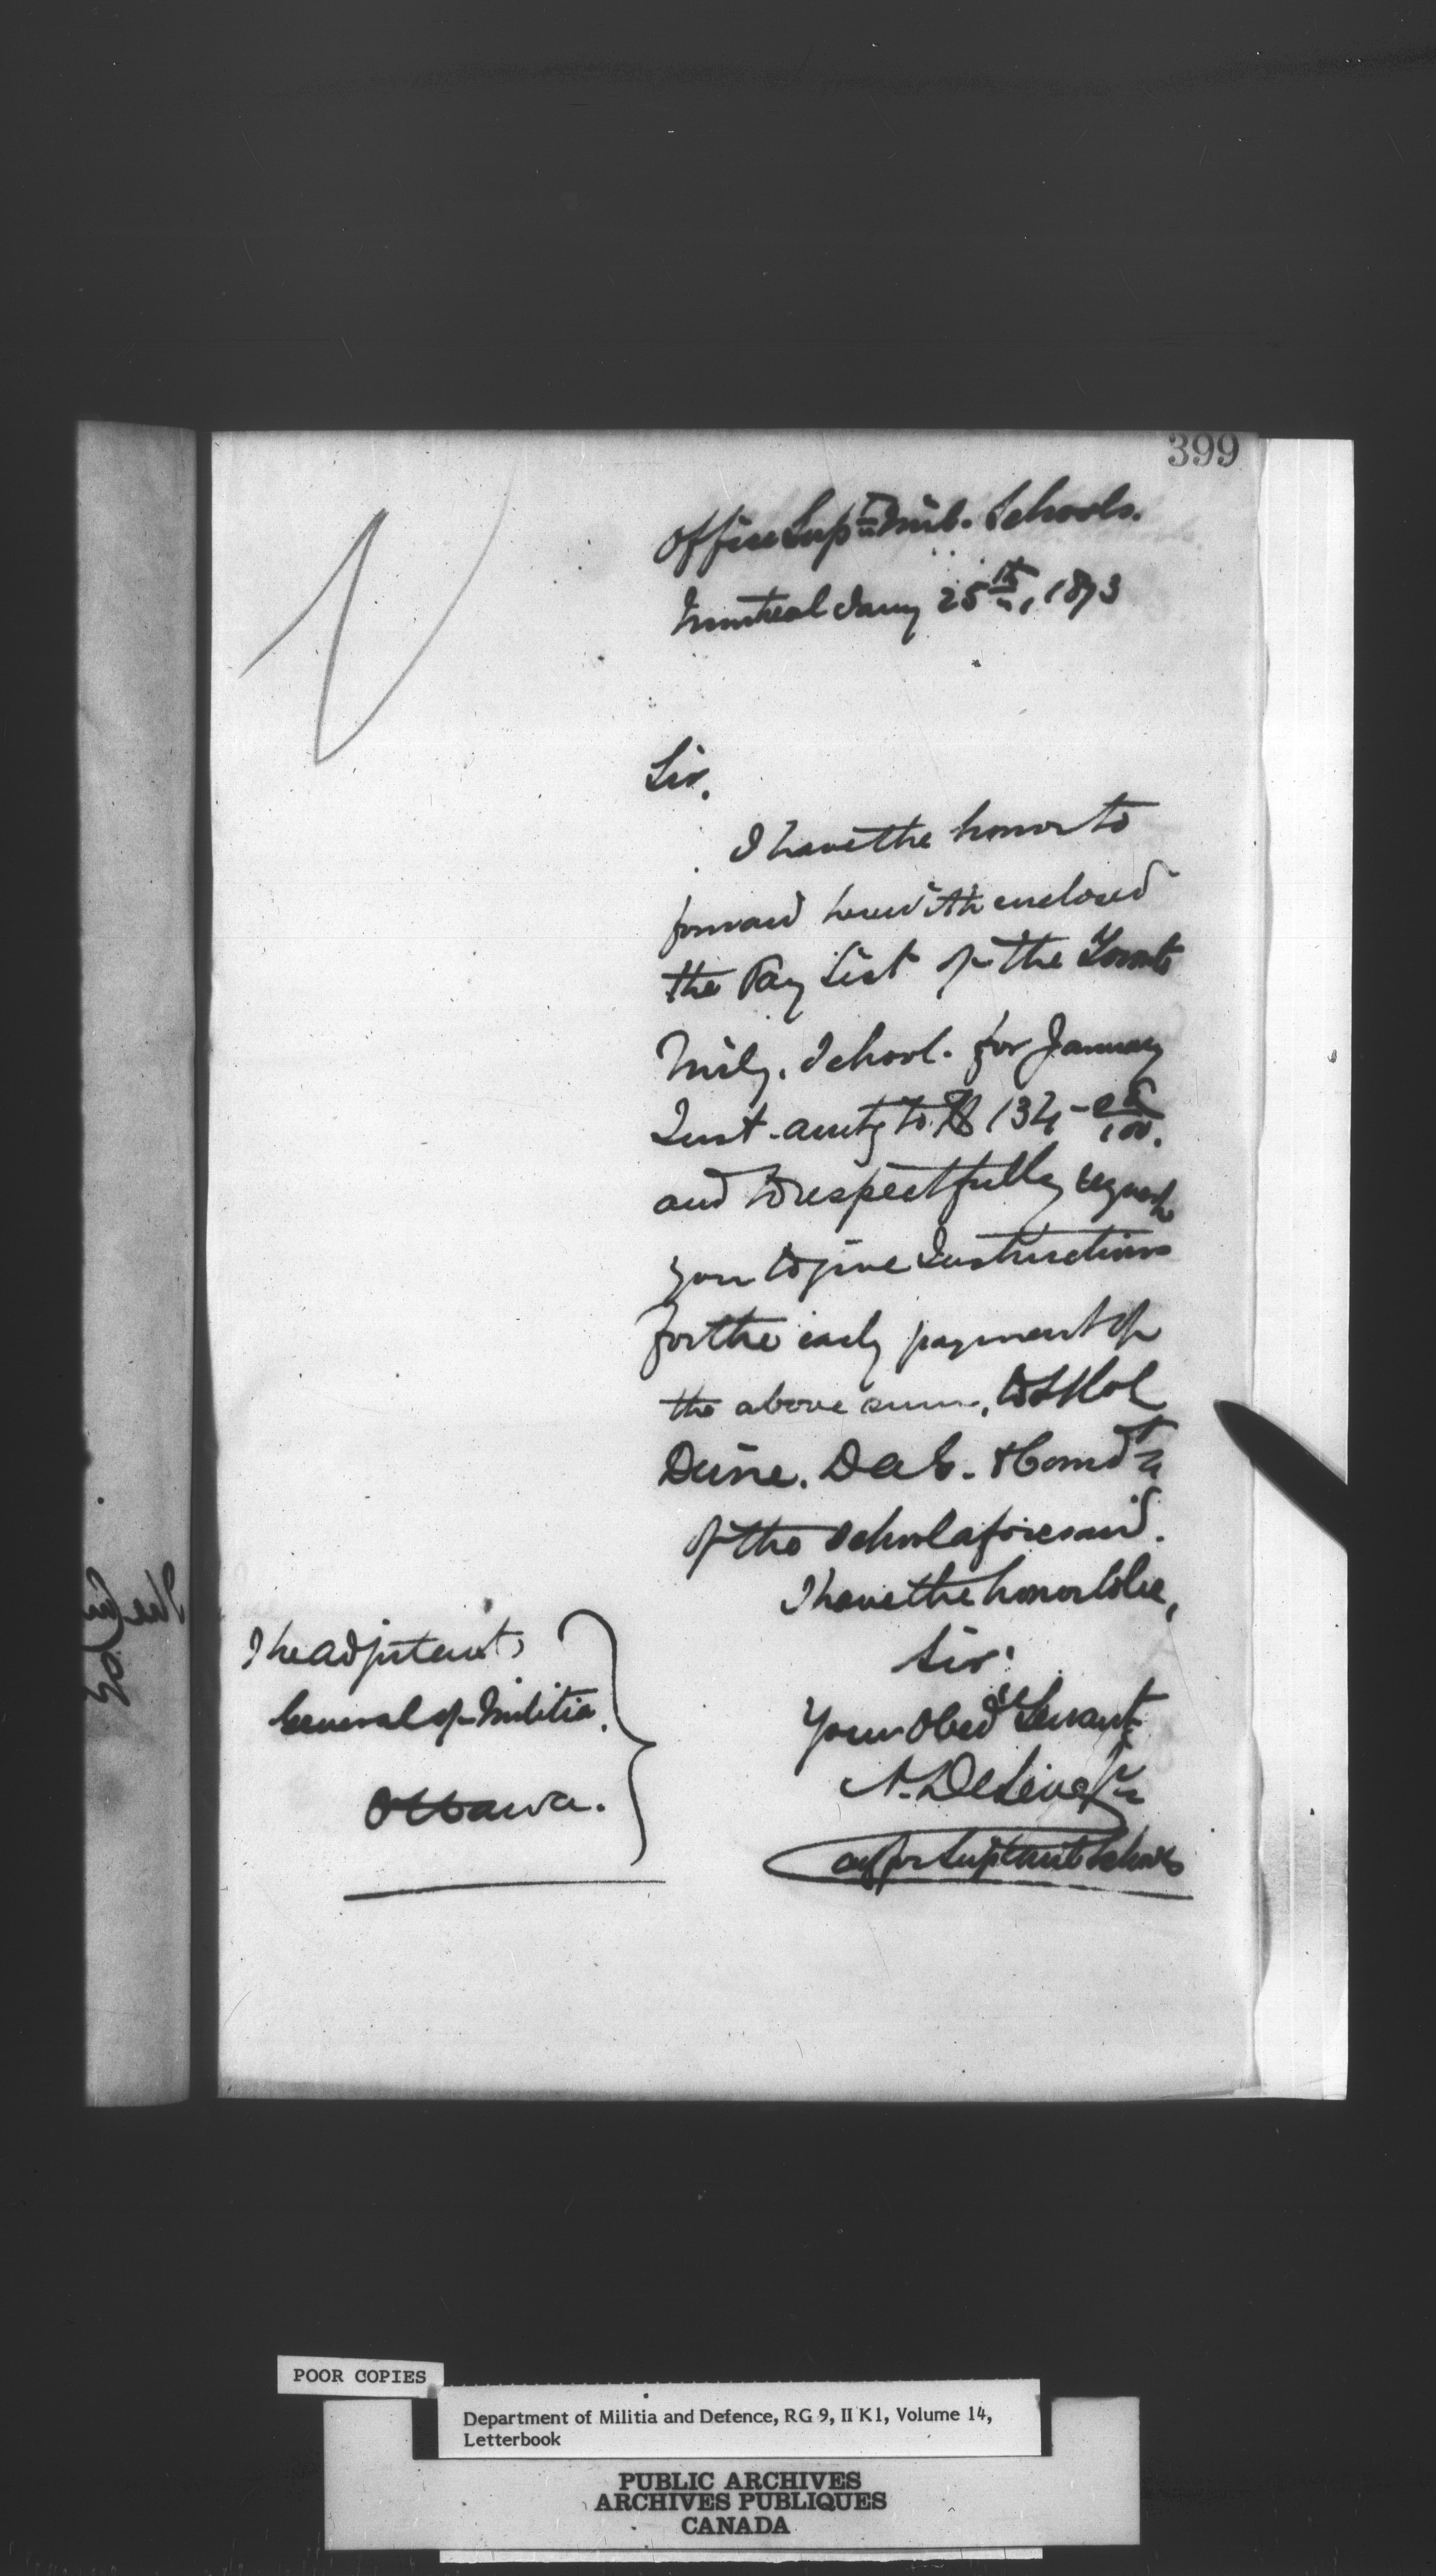 399
Office Supt Mil. Schools.
Montreal Jany 25th, 1873
Sir,
I have the honor to
forward herewith enclosed
the Pay List of the Toronto
Mily. School. for January
Inst. amtg to $ 134
and to respectfully request
you to give Instructions
for the early payment of
the above sum, to Lt Col
Durie. D A G. & Comdt
of the School aforesaid.
I have the honor to be,
Sir.
Your Obedt Servant
for Supt Mil Schools
The Adjutant,
General of Militia.
Ottawa.
POOR COPIES
Department of Militia and Defence, RG 9, II K1, Volume 14,
Letterbook
PUBLIC ARCHIVES
ARCHIVES PUBLIQUES
CANADA